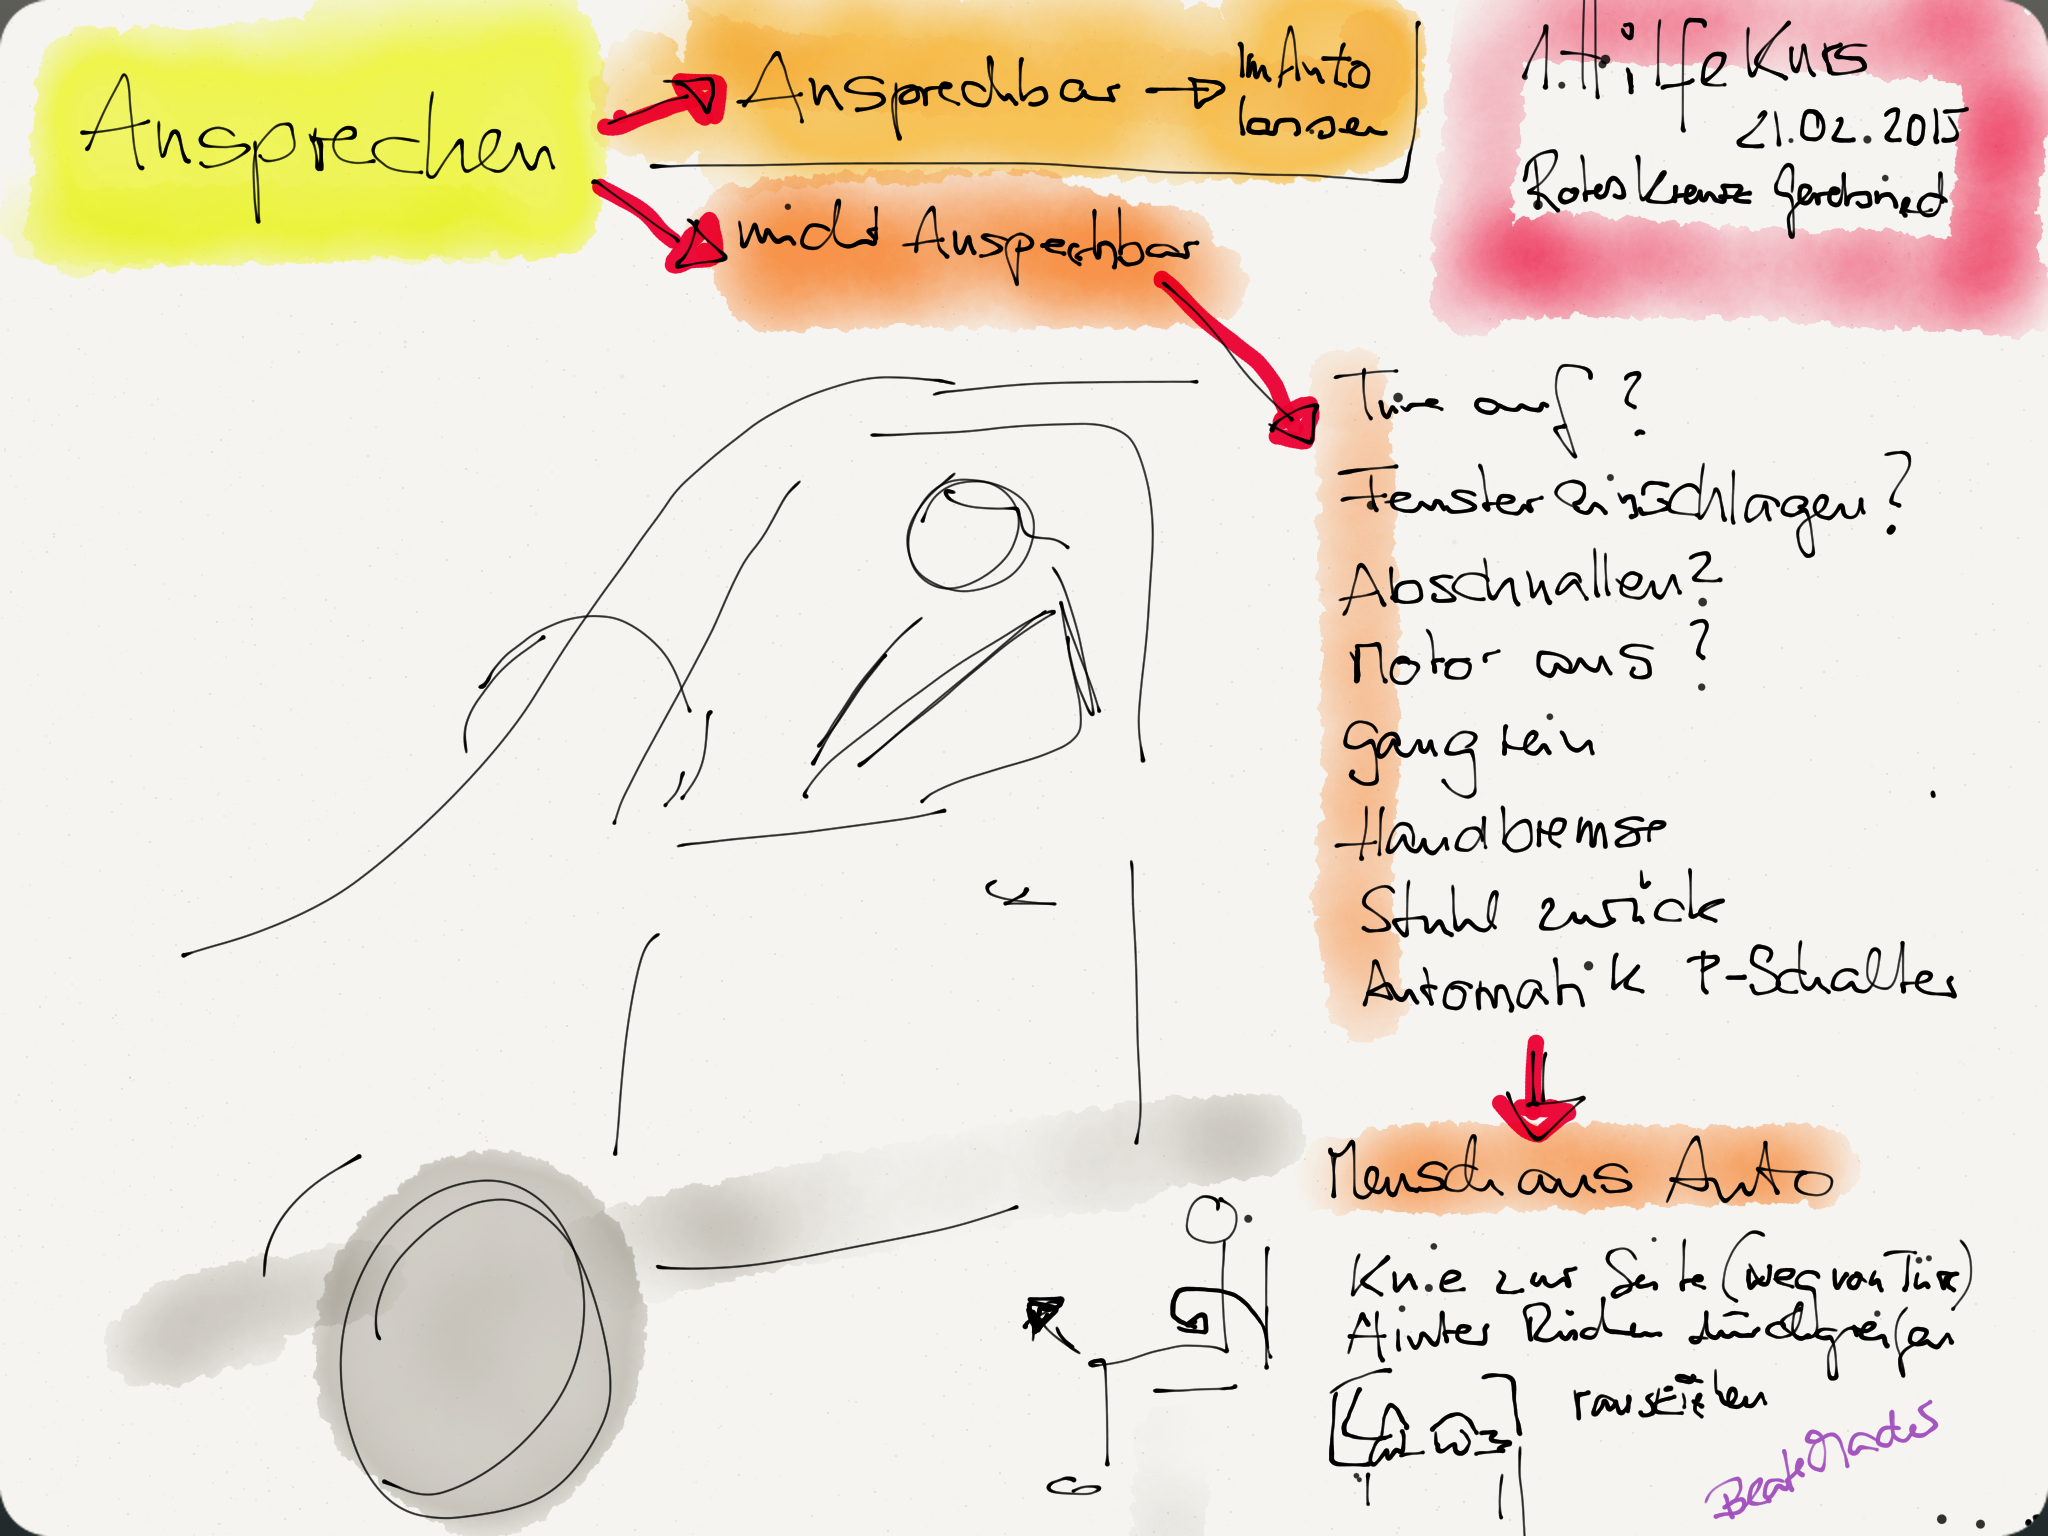 Ansprechen
Ansprechbar → im Auto
lassen
nicht Anspechbar
1. Hilfe Kurs
21.02.2015
Rotes Kreuz
Türe auf?
Fenster einschlagen?
Abschnallen?
Motor aus?
Gang rein
Handbremse
Stuhl zurück
Automatik P-Schalter
Mensch aus Auto
Knie zur Seite (weg von Türe)
Hinter Rücken durchgreifen
rausziehen
Beate